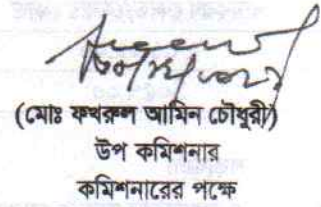 (মোঃ ফখরুল আমিন চৌধুরী)
উপ কমিশনার
কমিশনারের পক্ষে